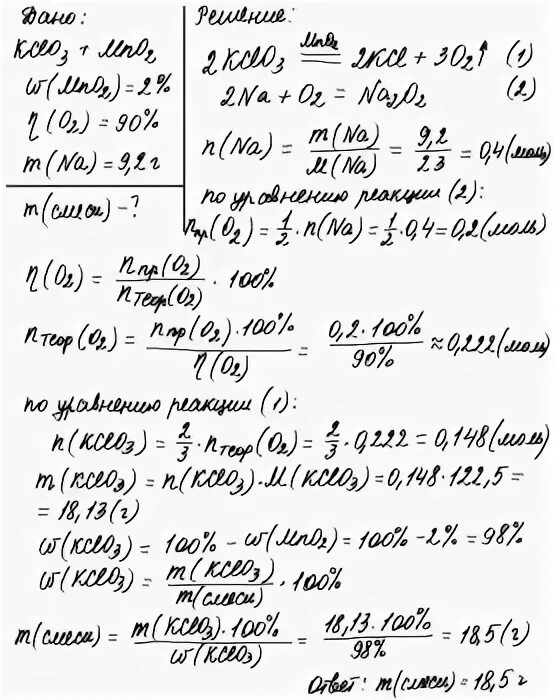 Дано:
KClO3 + MnO2
ω(MnO2) = 2%
η(O2) = 90%
m(Na) = 9,2 г
m(смеси) - ?
Решение:
2KClO3 MnO2= 2KCl + 3O2↑ (1)
2Na + O2 = Na2O2 (2)
n(Na) = m(Na)/M(Na) = 9,2/23 = 0,4 (моль)
по уравнению реакции (2):
nпр(O2) = 1/2 · n(Na) = 1/2 · 0,4 = 0,2 (моль)
η(O2) = nпр(O2)/nтеор(O2) · 100%
nтеор(O2) = nпр(O2) · 100%/η(O2) = 0,2 · 100%/90% ≈ 0,222 (моль)
по уравнению реакции (1):
n(KClO3) = 2/3 · nтеор(O2) = 2/3 · 0,222 = 0,148 (моль)
m(KClO3) = n(KClO3) · M(KClO3) = 0,148 · 122,5 =
= 18,13 (г)
ω(KClO3) = 100% - ω(MnO2) = 100% - 2% = 98%
ω(KClO3) = m(KClO3)/m(смеси) · 100%
m(смеси) = m(KClO3) · 100%/ω(KClO3) = 18,13 · 100%/98% = 18,5 (г)
Ответ: m(смеси) = 18,5 г